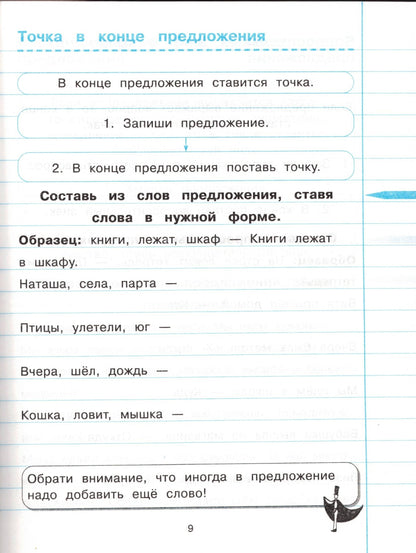 Точка в конце предложения
В конце предложения ставится точка.
1. Запиши предложение.
2. В конце предложения поставь точку.
Составь из слов предложения, ставя
слова в нужной форме.
Образец: книги, лежат, шкаф — Книги лежат
в шкафу.
Наташа, села, парта —
Птицы, улетели, юг —
Вчера, шёл, дождь —
Кошка, ловит, мышка —
Обрати внимание, что иногда в предложение
надо добавить ещё слово!
9